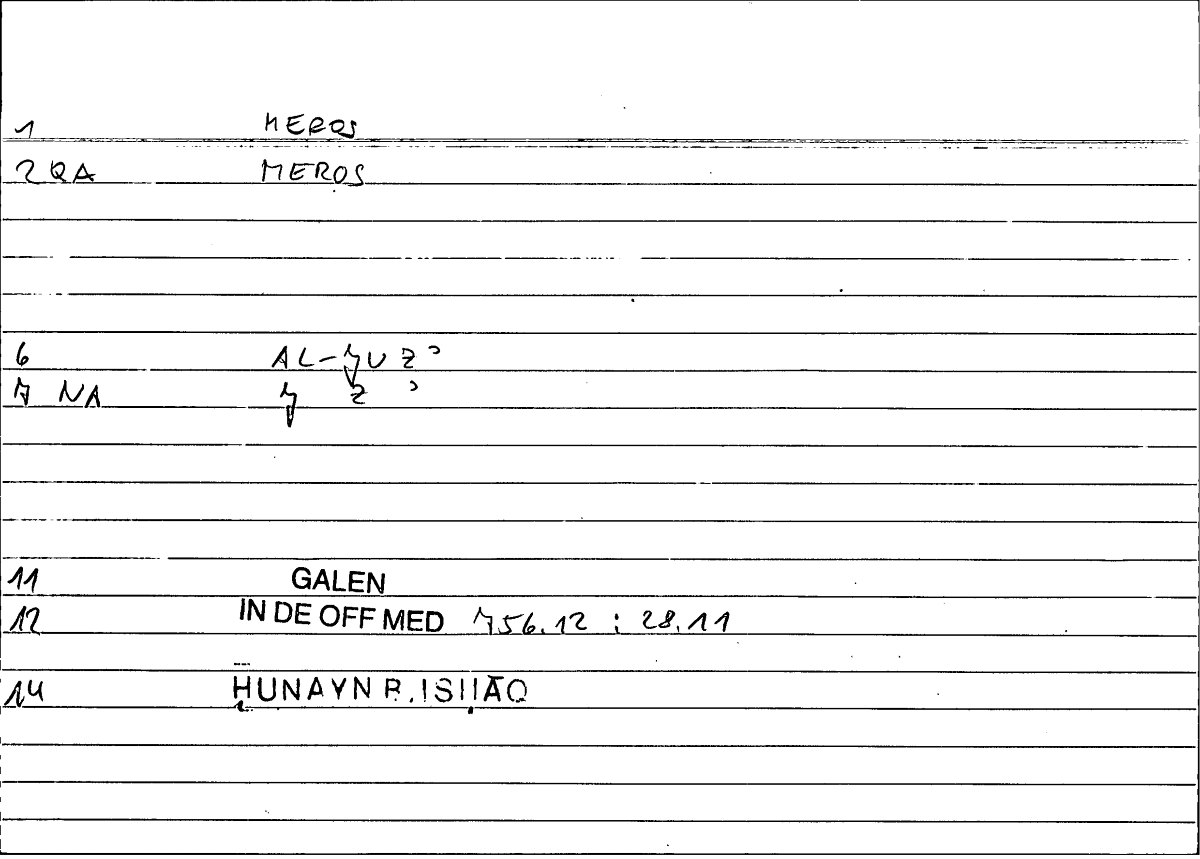 1 MEROS
2 QA MEROS
6 AL-ǦUZʾ
7 NA Ǧ Z ʾ
11 GALEN
12 IN DE OFF MED 756.12 : 28.11
14 ḤUNAYN B. ISḤĀQ